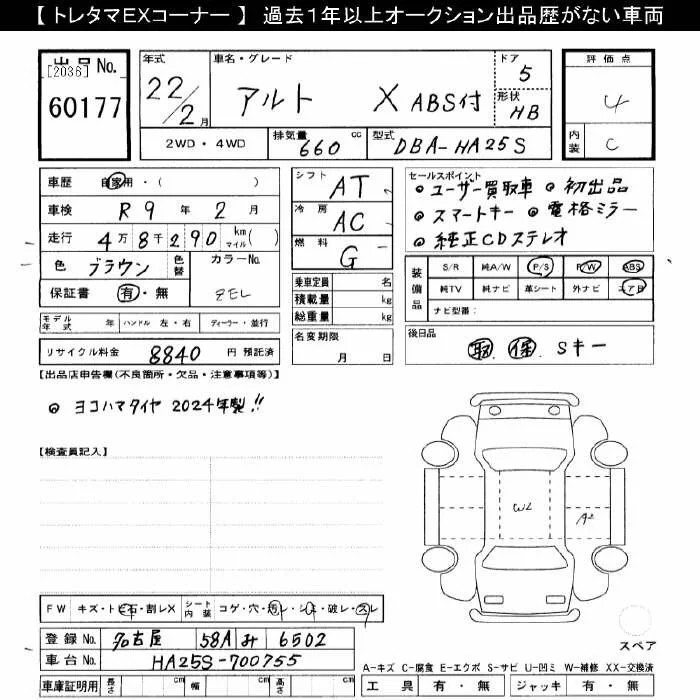 【トレタマEXコーナー】 過去1年以上オークション出品歴がない車両
出品No.
[2036]
60177
年式 22/2月
車名・グレード アルト X ABS付
ドア 5
形状 HB
2WD・4WD 排気量 660 cc 型式 DBA-HA25S
評価点
4
内装 C
車歴 自家用・( )
車検 R9年 2月
走行 4万8千290 km マイル( )
色 ブラウン 色替 カラーNo.
保証書 有・無 ZEL
モデル年式 年 ハンドル 左・右 ディーラー・並行
リサイクル料金 8840 円 預託済
シフト AT
冷房 AC
燃料 G
乗車定員 名
積載量 kg
総重量 kg
名変期限
月 日
セールスポイント
◎ユーザー買取車 ◎初出品
◎スマートキー ◎電格ミラー
◎純正CDステレオ
装備品 S/R 純A/W P/S P/W ABS
純TV 純ナビ 革シート 外ナビ エアB
ナビ型番:
後日品
取 保 Sキー
【出品店申告欄(不良箇所・欠品・注意事項等)】
◎ヨコハマタイヤ 2024年製!!
【検査員記入】
W2
A2
FW キズ・トビ石・割レX シート内装 コゲ・穴・汚レ・シミ・破レ・スレ
登録No. 名古屋 58A み 6502
車台No. HA25S-700755
車庫証明用 長さ cm 幅 cm 高さ cm
スペア
A-キズ C-腐食 E-エクボ S-サビ U-凹ミ W-補修 XX-交換済
工具 有・無 ジャッキ 有・無